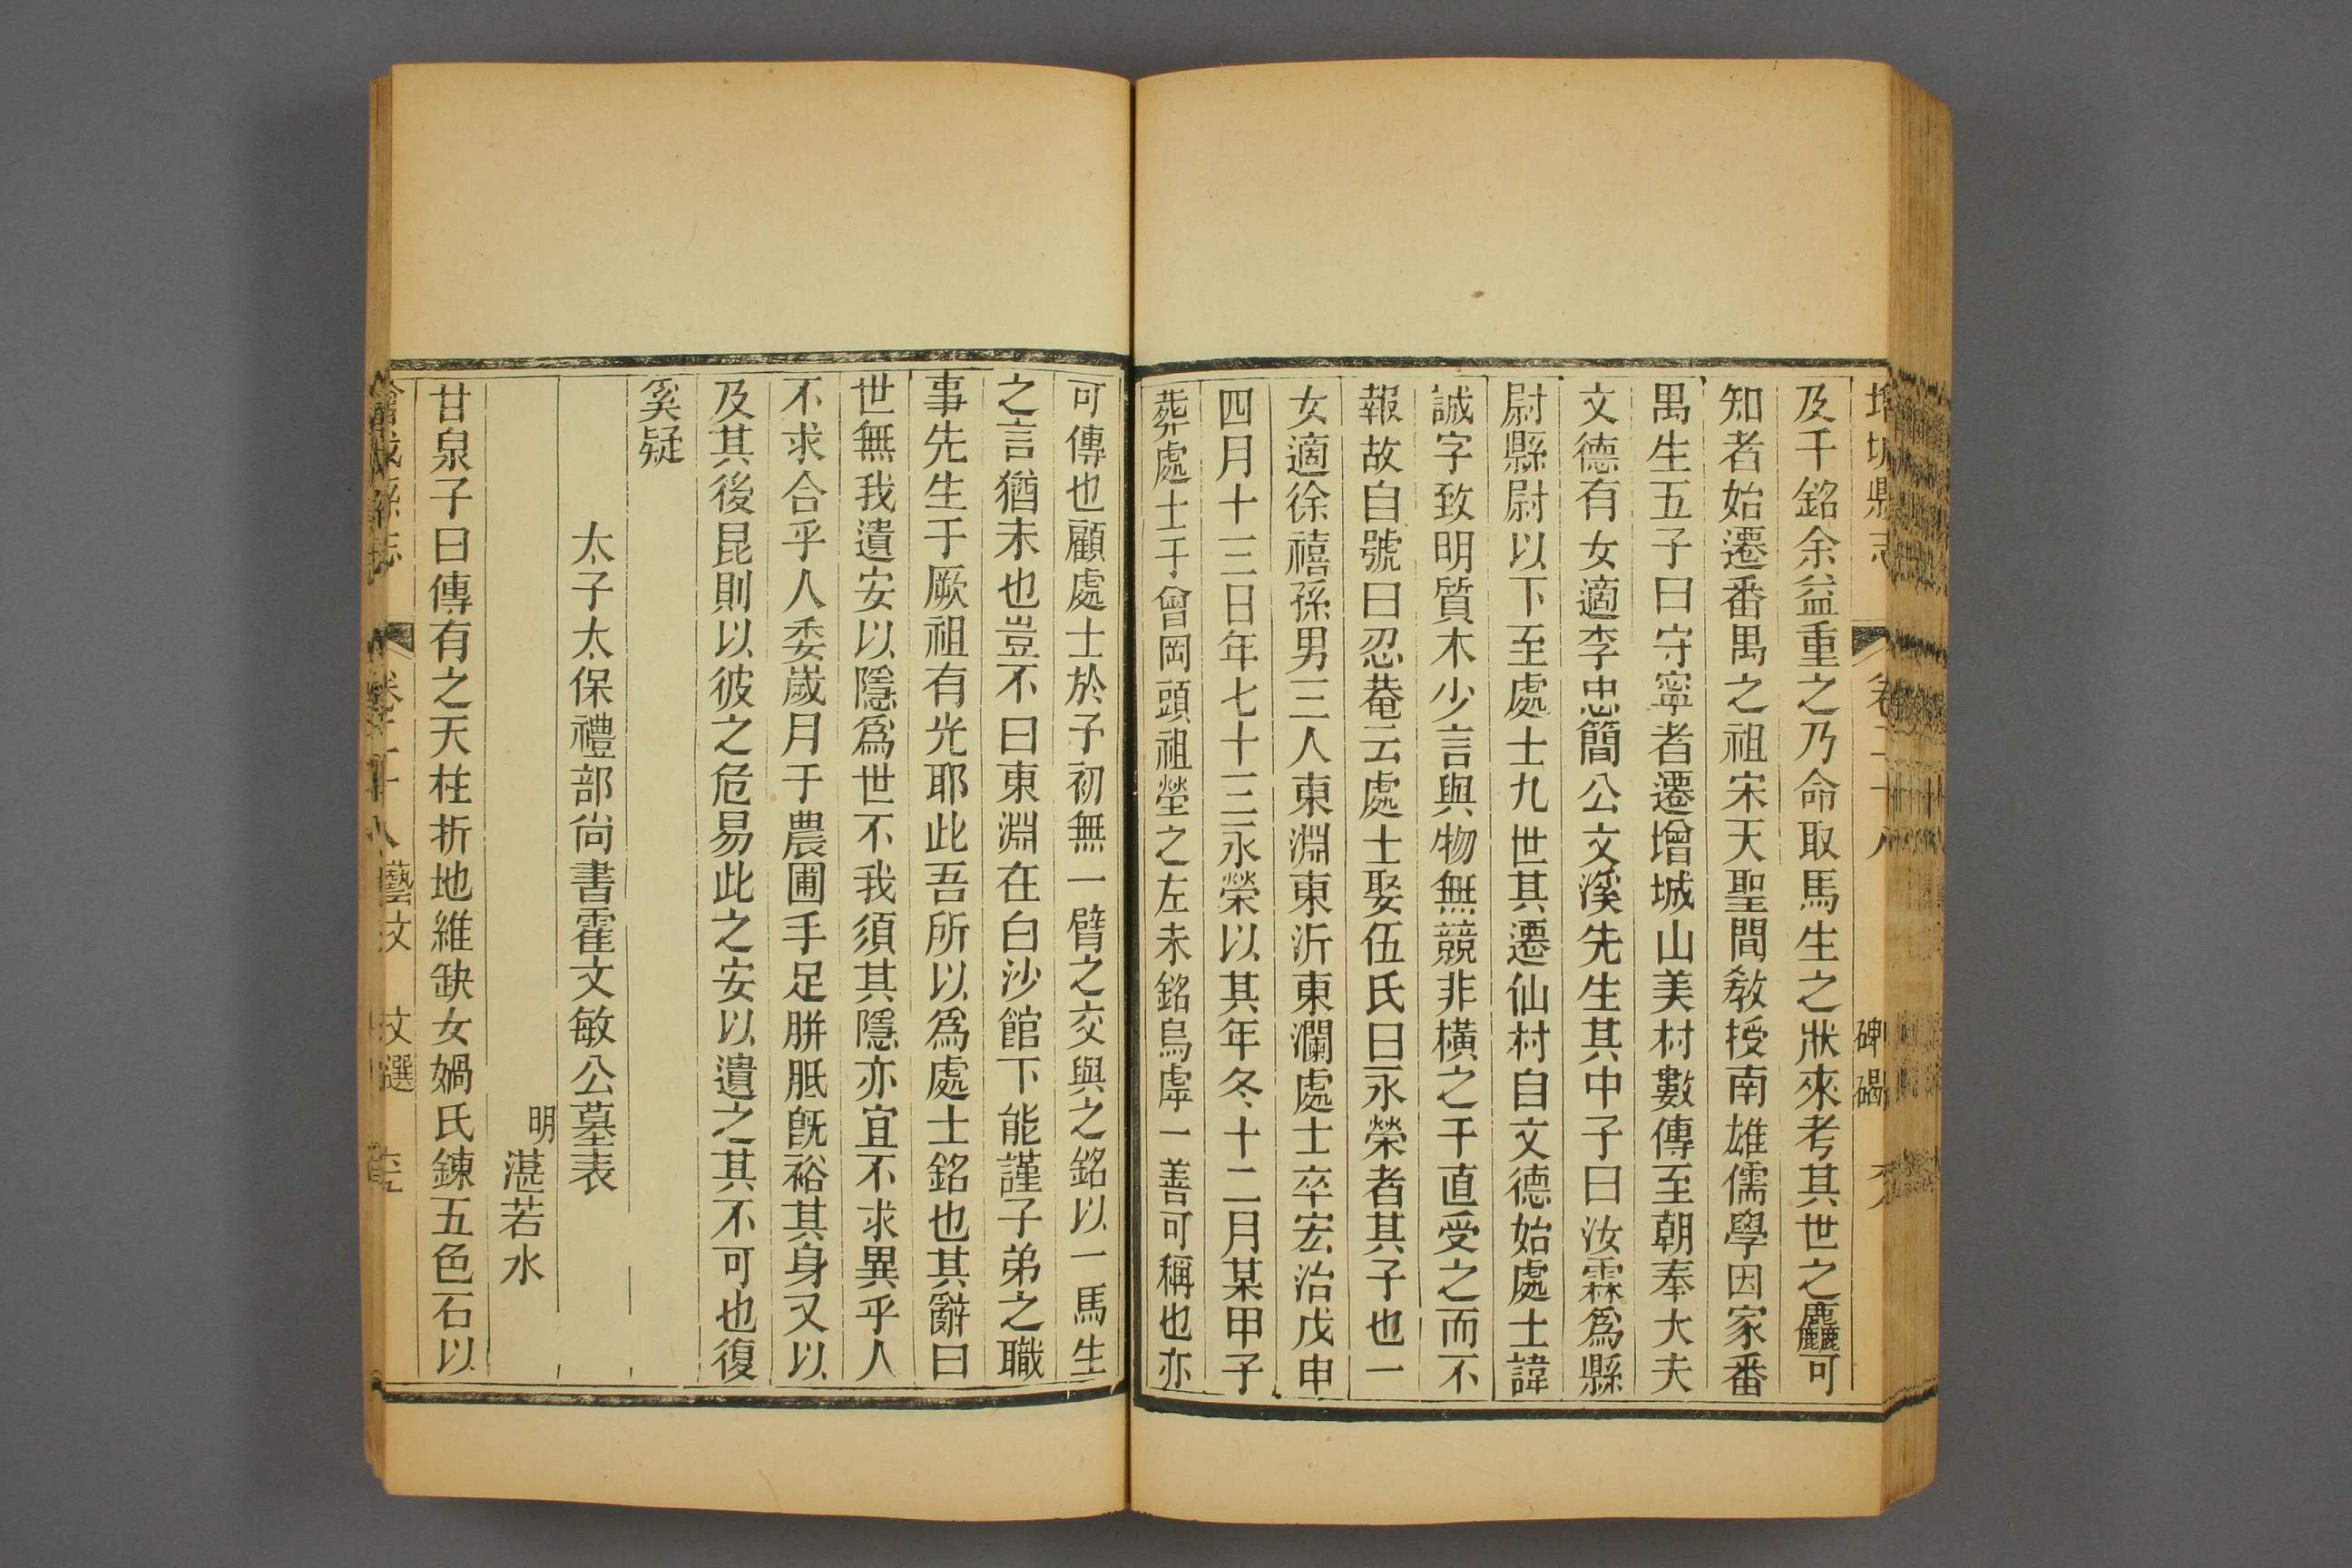 增城縣志 卷二十八 碑碣
及千銘余益重之乃命取馬生之狀來考其世之麤可
知者始遷番禺之祖宋天聖間敎授南雄儒學因家番
禺生五子曰守寧者遷增城山美村數傳至朝奉大夫
文德有女適李忠簡公文溪先生其中子曰汝霖爲縣
尉縣尉以下至處士九世其遷仙村自文德始處士諱
誠字致明質木少言與物無競非橫之干直受之而不
報故自號曰忍菴云處士娶伍氏曰永榮者其子也一
女適徐禧孫男三人東淵東沂東瀾處士卒宏治戊申
四月十三日年七十三永榮以其年冬十二月某甲子
葬處士于曾岡頭祖塋之左未銘烏虖一善可稱也亦
可傳也顧處士於予初無一臂之交與之銘以一馬生
之言猶未也豈不曰東淵在白沙館下能謹子弟之職
事先生于厥祖有光耶此吾所以爲處士銘也其辭曰
世無我遺安以隱爲世不我須其隱亦宜不求異乎人
不求合乎人委歲月于農圃手足胼胝旣裕其身又以
及其後昆則以彼之危易此之安以遺之其不可也復
奚疑
太子太保禮部尙書霍文敏公墓表
明湛若水
甘泉子曰傳有之天柱折地維缺女媧氏鍊五色石以
增城縣志 卷二十八 藝文 文選